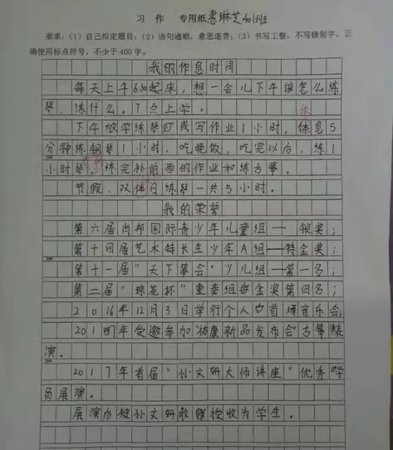 习 作 专用纸 惠琳芝
要求:(1)自己拟定题目;(2)语句通顺,意思连贯;(3)书写工整,不写错别字,正
确使用标点符号,不少于400字。
我的作息时间
每天上午6:30起床,想一会儿下午该怎么练
琴,练什么。7点上学。
下午放学练琴或写作业1小时,休息5
分钟练钢琴1小时。吃晚饭,吃完以后,练1
小时琴,练完补前面的作业和练古筝。
节假、双休日练琴一共5小时。
我的荣誉
第六届尚郎国际青少年儿童组——银奖;
第十四届艺术特长生少年A组——特金奖;
第十一届“天下筝会”少儿组——第一名;
第二届“琼花杯”重奏组金奖第四名;
2016年12月3日举行个人首场音乐会;
2017年受邀参加新品发布会古筝
演。
2017年首届“孙文妍大师讲座”优秀学
员展演。
展演后被孙文妍教授接收为学生。